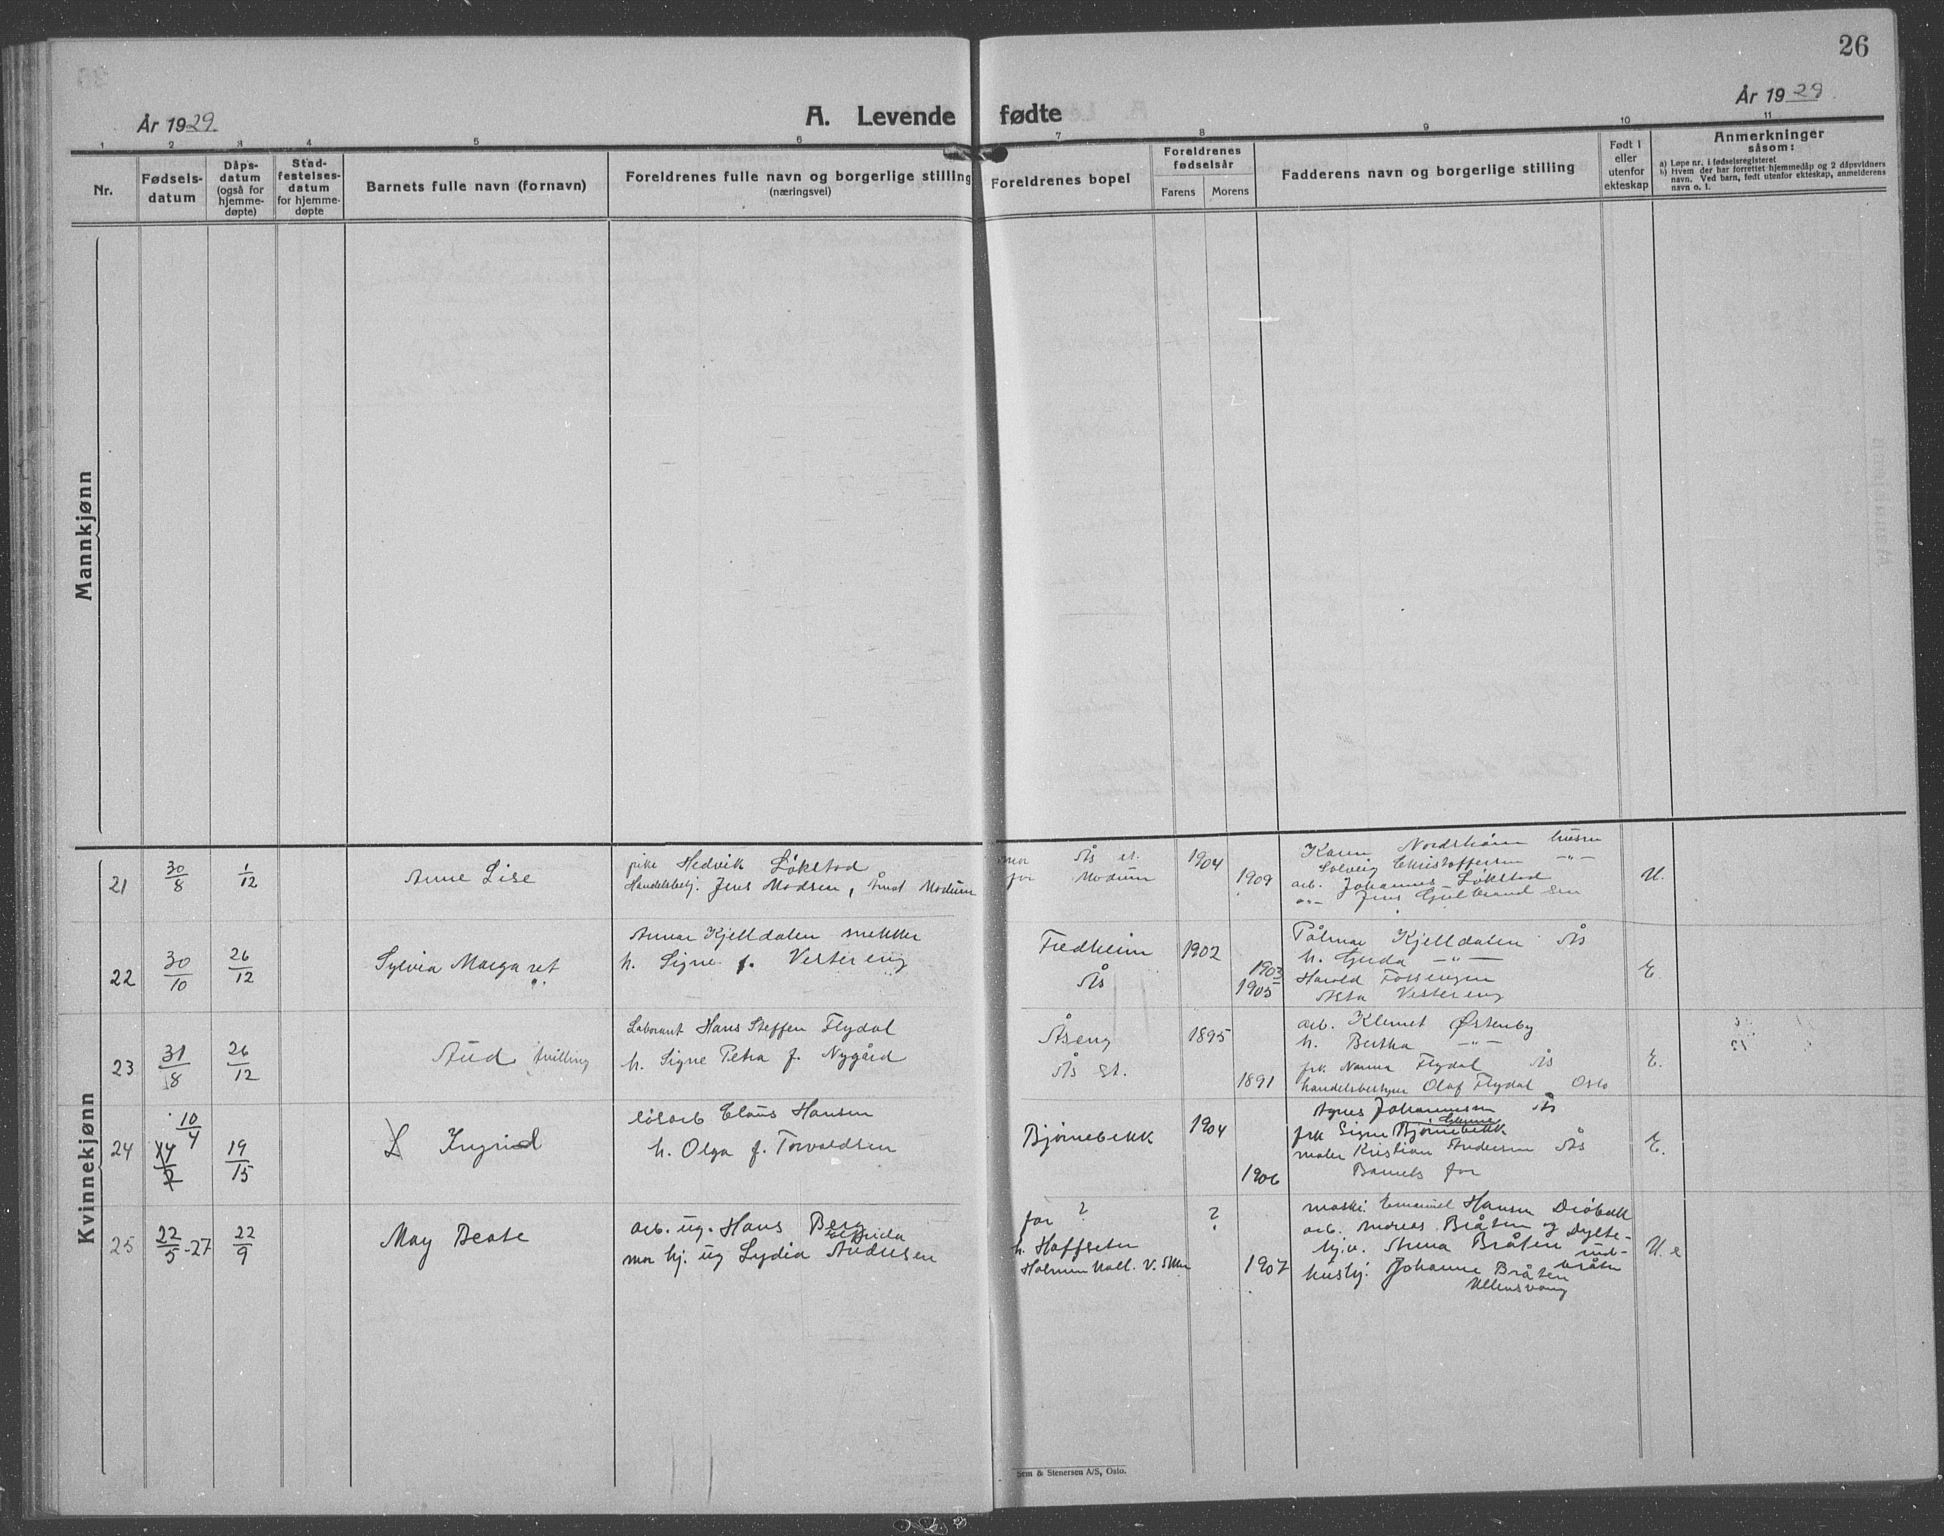 26
År 1929.
A. Levende fødte
År 1929.
1 2 3 4 5 6 7 8 9 10 11
Nr.
Fødselsdatum
Dåpsdatum (også for hjemmedøpte)
Stadfestelsesdatum for hjemmedøpte
Barnets fulle navn (fornavn)
Foreldrenes fulle navn og borgerlige stilling
(næringsvei)
Foreldrenes bopel
Foreldrenes fødselsår
Farens Morens
Fadderens navn og borgerlige stilling
Født i eller utenfor ekteskap
Anmerkninger såsom:
a) Løpe nr. i fødselsregisteret
b) Hvem der har forrettet hjemmedåp og 2 dåpsvidners navn. Ved barn, født utenfor ekteskap, anmelderens navn o. l.
Mannkjønn
Kvinnekjønn
21 30/8 1/12 Anne Lise
pike Hedvik Løkstad
Handelsbetj. Jens Madsen, Åmot Modum
mor Ås st.
far Modum
1904 1909
Karen Nordstrøm husm
Solveig Christoffersen -"-
arb. Johannes Løkstad
-"- Jens Gulbrandsen
U.
22 30/10 26/12 Sylvia Margaret
Annar Kjelldalen snekker
h. Signe f. Vestereng
Fredheim
Ås
1902 1903 1905
Pålmar Kjelldalen Ås
h. Gerda -"-
Harald Forsengen
Asta Vestereng
E.
23 31/8 26/12 Aud tvilling
Laborant Hans Steffen Flydal
h. Signe Petra f. Nygård
Åseng
Ås st.
1895 1891
arb. Klemet Østenby
h. Bertha -"-
frk Nanna Flydal Ås
handelsbestyrer Olaf Flydal Oslo
E.
24 10/4 14/2 19/15 Ingrid
løsarb Claus Hansen
h. Olga f. Torvaldsen
Bjørnebekk
1904 1906
Agnes Johannessen Ås
frk Signe Bjørnebekk
maler Kristian Andersen Ås
Barnets far
E.
25 22/5-27 22/9 May Beate
arb. ug. Hans Berg
mor hj. ug Lydia Elfrida Andresen
far ?
h. Hoffseter
Holmenkoll. V. Aker
? 1907
maski. Emanuel Hansen Drøbak
arb. Andreas Bråten og
hj.v. Anna Bråten
hushj. Johanne Bråten
Ullensvang
U. e
Sem & Stenersen A/S, Oslo.